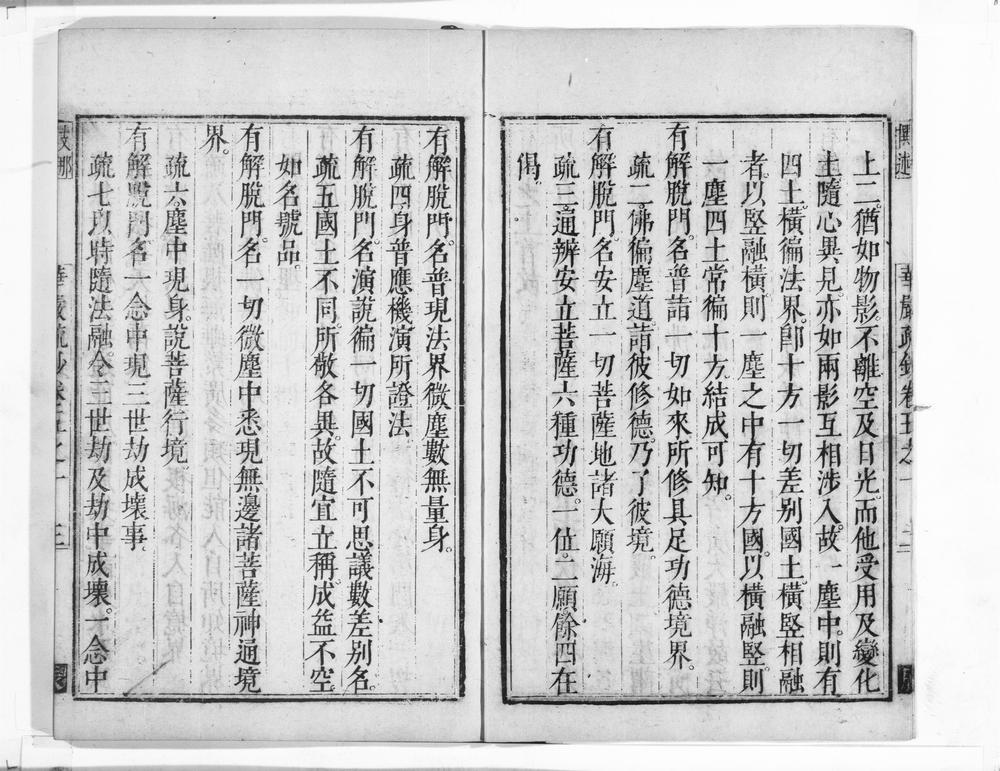 上二猶如物影不離空及日光而他受用及變化
土隨心異見亦如兩影互相涉入故一塵中則有
四土橫徧法界卽十方一切差別國土橫竪相融
者以竪融橫則一塵之中有十方國以橫融竪則
一塵四土常徧十方結成可知
有解脫門名普詣一切如來所修具足功德境界
疏二佛徧塵道詣彼修德乃了彼境
有解脫門名安立一切菩薩地諸大願海
疏三通辨安立菩薩六種功德一位二願餘四在
偈
有解脫門名普現法界微塵數無量身
疏四身普應機演所證法
有解脫門名演說徧一切國土不可思議數差別名
疏五國土不同所敬各異故隨宜立稱成益不空
如名號品
有解脫門名一切微塵中悉現無邊諸菩薩神通境
界
疏六塵中現身說菩薩行境
有解脫門名一念中現三世劫成壞事
疏七以時隨法融令三世劫及劫中成壞一念中
華嚴疏鈔卷五之一
三